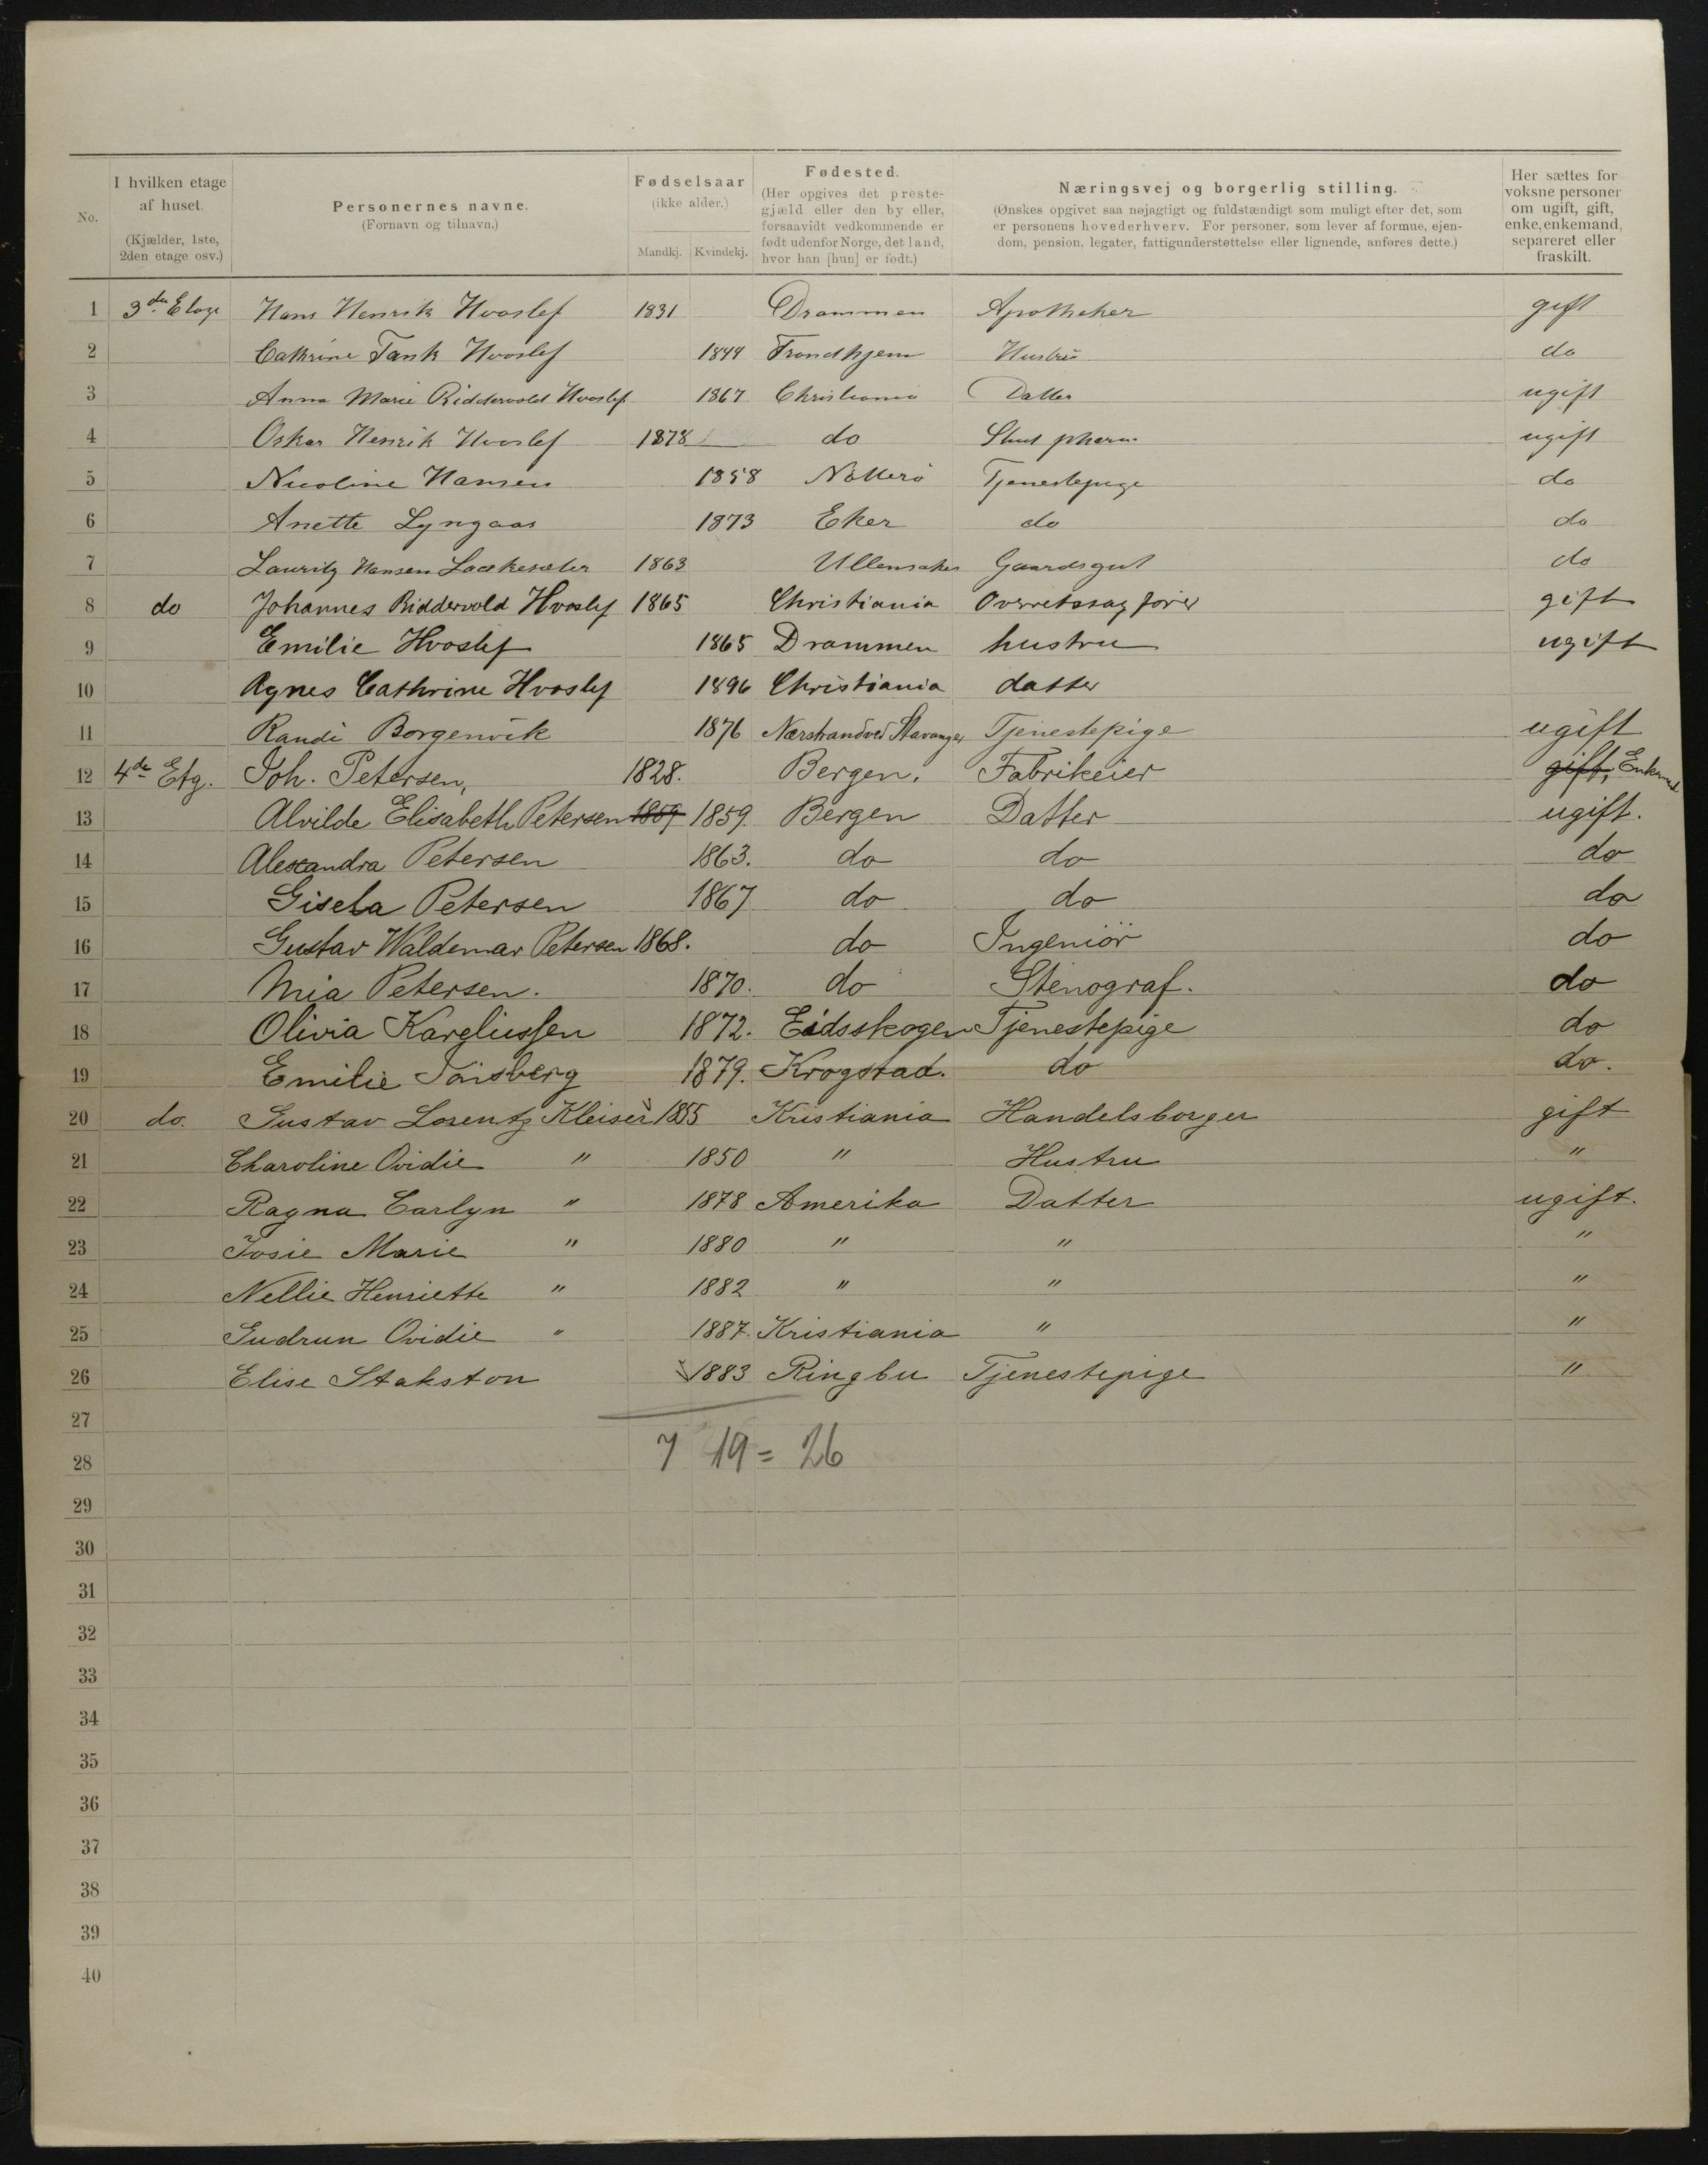 No.
I hvilken etage af huset. (Kjælder, 1ste, 2den etage osv.)
Personernes navne. (Fornavn og tilnavn.)
Fødselsaar (ikke alder.) Mandkj. Kvindekj.
Fødested. (Her opgives det prestegjæld eller den by eller, forsaavidt vedkommende er født udenfor Norge, det land, hvor han [hun] er født.)
Næringsvej og borgerlig stilling. (Ønskes opgivet saa nøjagtigt og fuldstændigt som muligt efter det, som er personens hovederhverv. For personer, som lever af formue, ejendom, pension, legater, fattigunderstøttelse eller lignende, anføres dette.)
Her sættes for voksne personer om ugift, gift, enke, enkemand, separeret eller fraskilt.
1 3die Etage Hans Henrik Hvoslef 1831 Drammen Apotheker gift
2 Cathrine Tank Hvoslef 1844 Trondhjem Hustru do
3 Anna Marie Riddervold Hvoslef 1867 Christiania Datter ugift
4 Oskar Henrik Hvoslef 1878 do Stud pharm ugift
5 Nicoline Hansen 1858 Nøtterø Tjenestepige do
6 Anette Lyngaas 1873 Eker do do
7 Lauritz Hansen 1863 Ullensaker Gaardsgut do
8 do Johannes Riddervold Hvoslef 1865 Christiania Overretssagfører gift
9 Emilie Hvoslef 1865 Drammen hustru ugift
10 Agnes Cathrine Hvoslef 1896 Christiania datter
11 Randi Borgenvik 1876 Nærstrand ved Stavanger Tjenestepige ugift
12 4de Etg. Joh. Petersen, 1828. Bergen. Fabrikeier gift, Enkemand
13 Alvilde Elisabeth Petersen 1859 1859. Bergen Datter ugift.
14 Alexandra Petersen 1863. do do do
15 Gisela Petersen 1867 do do do
16 Gustav Waldemar Petersen 1868. do Ingeniör do
17 Mia Petersen. 1870. do Stenograf. do
18 Olivia Kareliussen 1872. Eidsskogen Tjenestepige do
19 Emilie Tönsberg 1879. Krogstad. do do.
20 do. Gustav Lorentz Kleiser 1855 Kristiania Handelsborger gift
21 Charoline Ovidie " 1850 " Hustru "
22 Ragna Carlyn " 1878 Amerika Datter ugift.
23 Josie Marie " 1880 " " "
24 Nellie Henriette " 1882 " " "
25 Gudrun Ovidie " 1887. Kristiania " "
26 Elise Stakston 1883 Ringbu Tjenestepige "
27
7 19 = 26
28
29
30
31
32
33
34
35
36
37
38
39
40